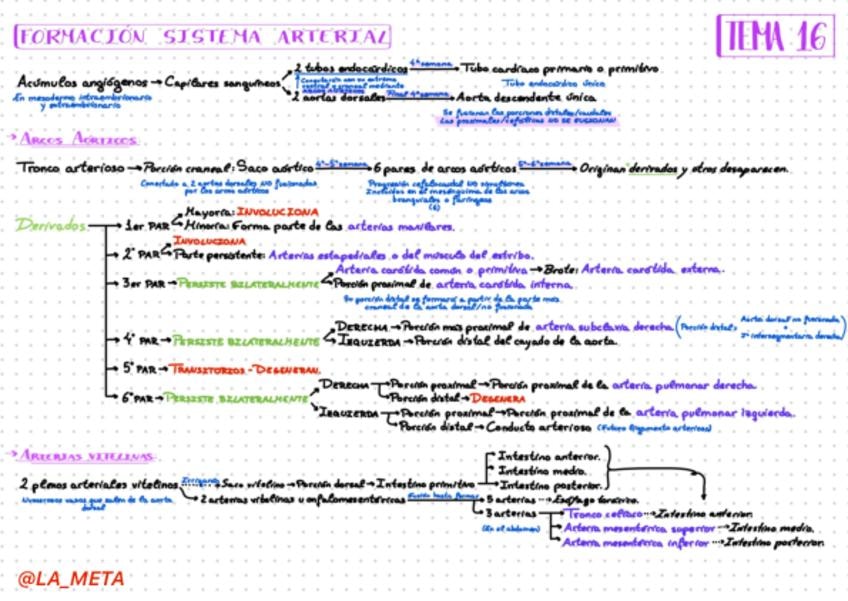 FORMACIÓN SISTEMA ARTERIAL
TEMA 16
Acúmulos angiógenos → Capilares sanguíneos
En mesodermo intraembrionario y extraembrionario
2 tubos endocárdicos 4ª semana → Tubo cardíaco primario o primitivo
Tubo endocárdico único
2 aortas dorsales Final 4ª semana → Aorta descendente única
Se fusionan las porciones distales/caudales
Las proximales/cefálicas NO SE FUSIONAN
→ ARCOS AÓRTICOS
Tronco arterioso → Porción craneal: Saco aórtico 4ª-5ª semana → 6 pares de arcos aórticos 5ª-6ª semana → Originan derivados y otros desaparecen.
Conectado a 2 aortas dorsales NO fusionadas por los arcos aórticos
Progresión cefalocaudal NO simultánea
Incluidos en el mesénquima de los arcos branquiales o faríngeos
(6)
Derivados
1er PAR
Mayoría: INVOLUCIONA
Minoría: Forma parte de las arterias maxilares.
2º PAR
INVOLUCIONA
Parte persistente: Arterias estapediales o del músculo del estribo.
3er PAR → PERSISTE BILATERALMENTE
Arteria carótida común o primitiva → Brote: Arteria carótida externa.
Porción proximal de arteria carótida interna.
Su porción distal se formará a partir de la parte más craneal de la aorta dorsal/no fusionada
4º PAR → PERSISTE BILATERALMENTE
DERECHA → Porción más proximal de arteria subclavia derecha (Porción distal: Aorta dorsal no fusionada + 7ª intersegmentaria derecha)
IZQUIERDA → Porción distal del cayado de la aorta.
5º PAR → TRANSITORIOS - DEGENERAN.
6º PAR → PERSISTE BILATERALMENTE
DERECHA → Porción proximal → Porción proximal de la arteria pulmonar derecha.
Porción distal → DEGENERA
IZQUIERDA → Porción proximal → Porción proximal de la arteria pulmonar izquierda.
Porción distal → Conducto arterioso (Futuro ligamento arterioso)
→ ARTERIAS VITELINAS
2 plexos arteriales vitelinos Irrigando Saco vitelino → Porción dorsal → Intestino primitivo
Numerosos vasos que salen de la aorta dorsal
Intestino anterior.
Intestino medio.
Intestino posterior.
2 arterias vitelinas u onfalomesentéricas Fusión hasta formar
5 arterias → Esófago torácico.
3 arterias
(En el abdomen)
Tronco celíaco → Intestino anterior.
Arteria mesentérica superior → Intestino medio.
Arteria mesentérica inferior → Intestino posterior.
@LA_META